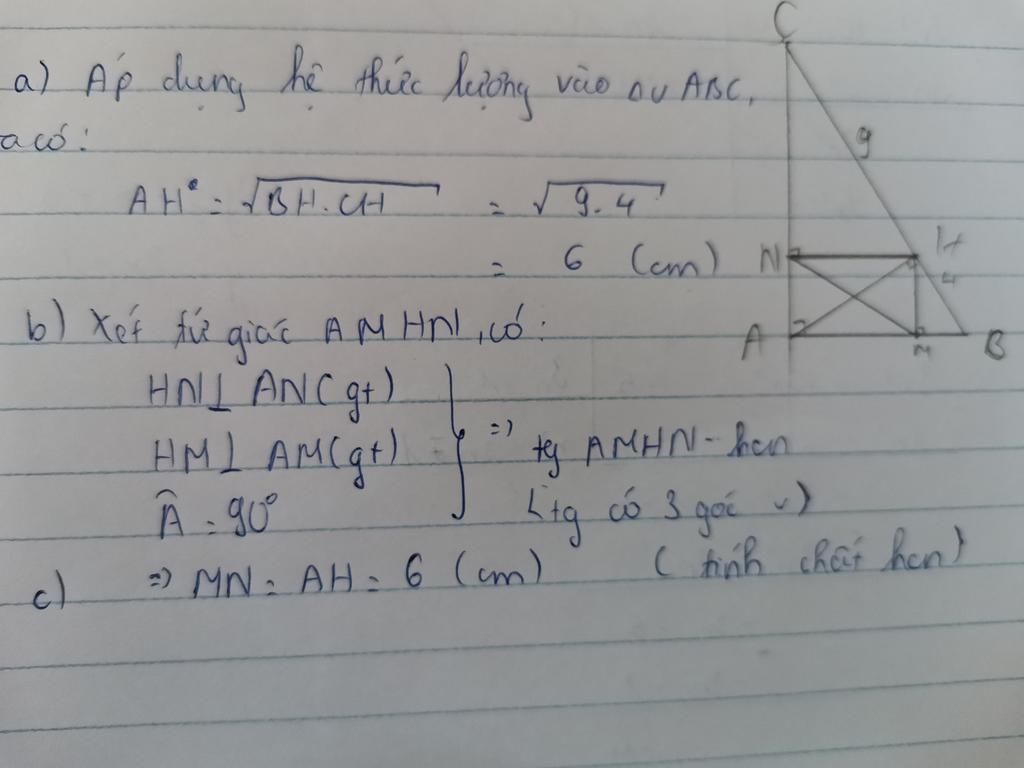 a) Áp dụng hệ thức lượng vào Δv ABC,
a có:
AH = √BH.CH = √9.4
= 6 (cm)
b) Xét tứ giác AMHN, có:
HN⊥ AN(gt)
HM⊥ AM(gt)
=> tg AMHN - hcn
Â = 90°
(tg có 3 góc v)
c) => MN = AH = 6 (cm) (tính chất hcn)
C
9
N
H
4
A
M
B